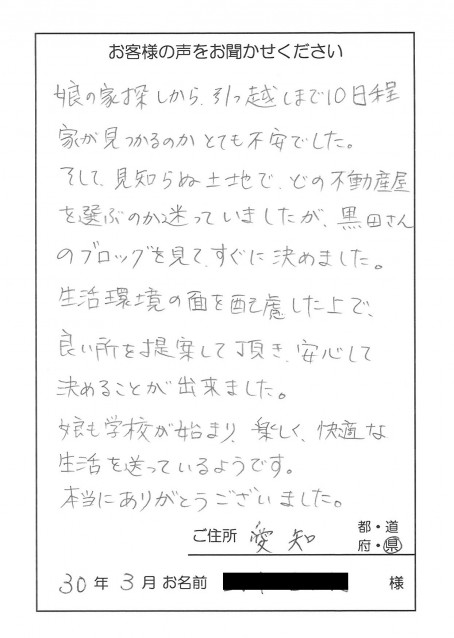 お客様の声をお聞かせください
娘の家探しから、引っ越しまで10日程
家が見つかるのかとても不安でした。
そして、見知らぬ土地で、どの不動産屋
を選ぶのか迷っていましたが、黒田さん
のブロッグを見て、すぐに決めました。
生活環境の面を配慮した上で、
良い所を提案して頂き、安心して
決めることが出来ました。
娘も学校が始まり、楽しく、快適な
生活を送っているようです。
本当にありがとうございました。
ご住所 愛知 都・道
府・県
30年3月 お名前 様